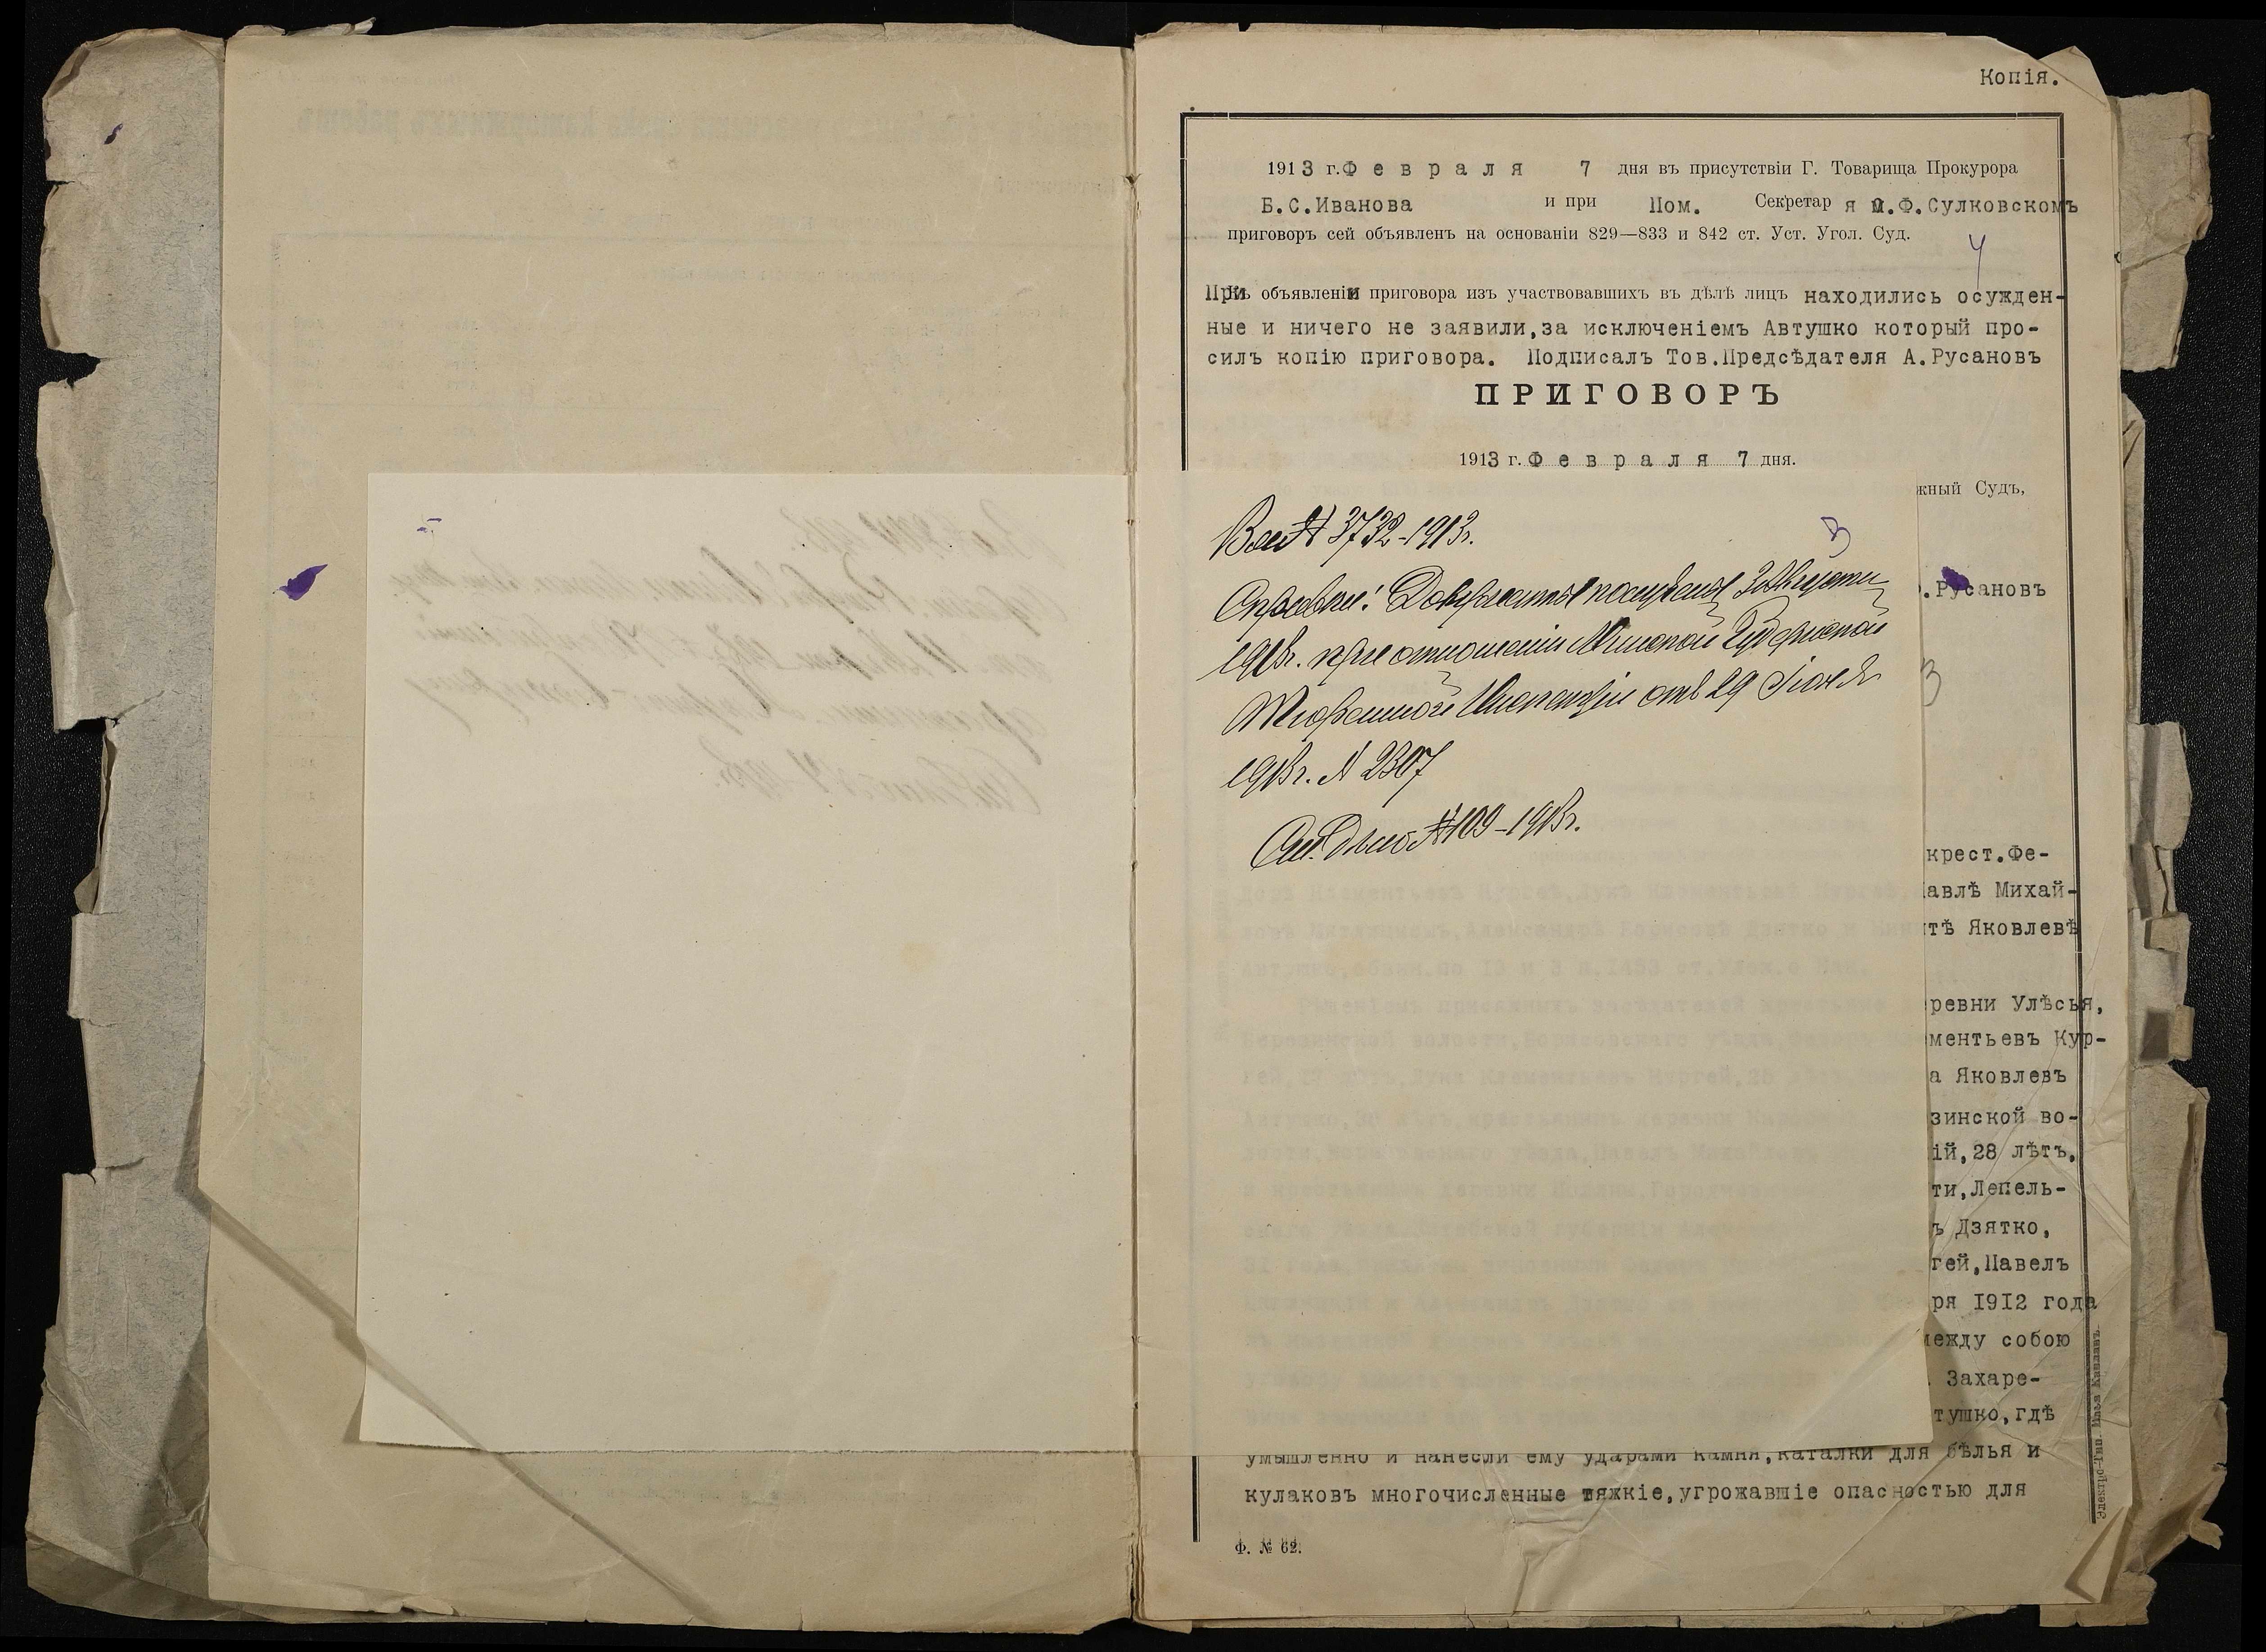 Копія.
1913 г. Февраля 7 дня въ присутствіи Г. Товарища Прокурора
Б.С.Иванова и при Пом. Секретаря М.Ф.Сулковскомъ
приговоръ сей объявленъ на основаніи 829—833 и 842 ст. Уст. Угол. Суд.
4
При объявленіи приговора изъ участвовавшихъ въ дѣлѣ лицъ находились осужден-
ные и ничего не заявили,за исключеніемъ Автушко который про-
силъ копію приговора. Подписалъ Тов.Предсѣдателя А.Русановъ
ПРИГОВОРЪ
1913 г. Февраля 7 дня.
жный Судъ,
Вх. № 3732-1913г.
3
Справка: Документы получены 3 Августа
1913г. при отношеніи Минской Губернской
.Русановъ
Тюремной Инспекціи отъ 29 Іюля
3
1913г. № 2307
См. Дѣло № 109-1913г.
крест.Фе-
авлѣ Михай-
тѣ Яковлевѣ
ревни Улѣсья,
ментьевъ Кур-
а Яковлевъ
зинской во-
ій,28 лѣтъ,
ти,Лепель-
ъ Дзятко,
гей,Павелъ
ря 1912 года
между собою
Захаре-
тушко,гдѣ
умышленно и нанесли ему ударами камня,каталки для бѣлья и
кулаковъ многочисленные тяжкіе,угрожавшіе опасностью для
Ф. № 62.
Электро-Тип. Каплана